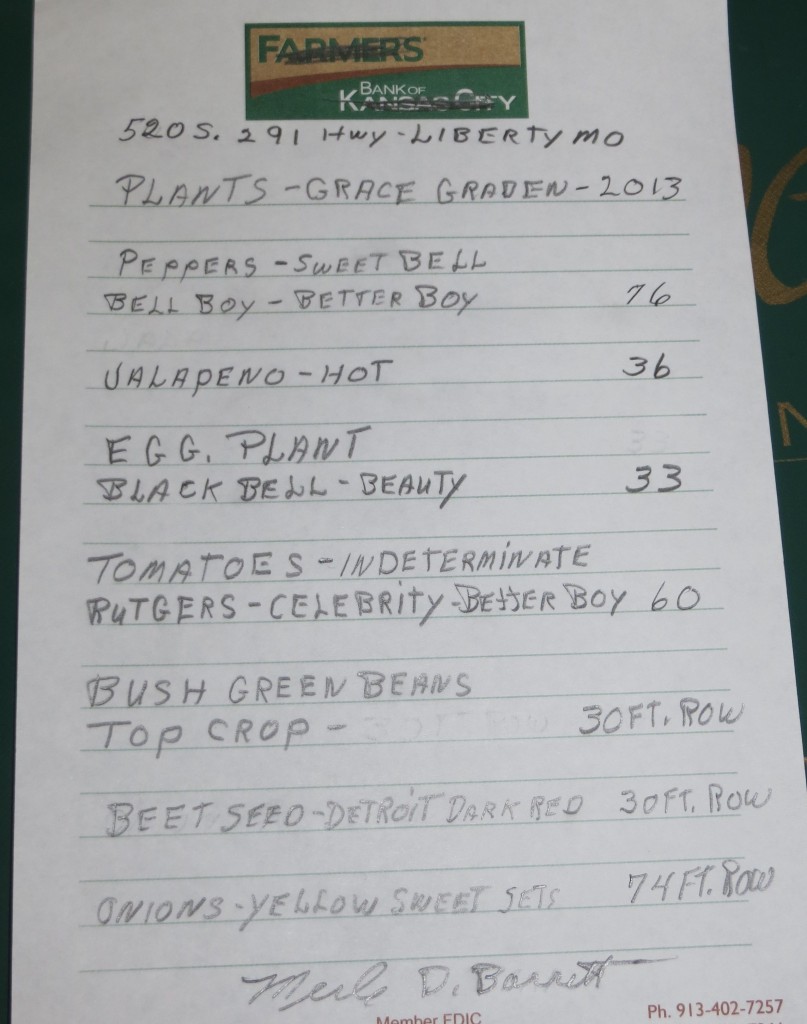 FARMERS
BANK OF
KANSAS CITY
520 S. 291 HWY - LIBERTY MO
PLANTS - GRACE GRADEN - 2013
PEPPERS - SWEET BELL
BELL BOY - BETTER BOY 76
JALAPENO - HOT 36
EGG. PLANT
BLACK BELL - BEAUTY 33
TOMATOES - INDETERMINATE
RUTGERS - CELEBRITY - BETTER BOY 60
BUSH GREEN BEANS
TOP CROP - 30 FT. ROW
BEET SEED - DETROIT DARK RED 30 FT. ROW
ONIONS - YELLOW SWEET SETS 74 FT. ROW
Merle D. Barrett
Member FDIC Ph. 913-402-7257